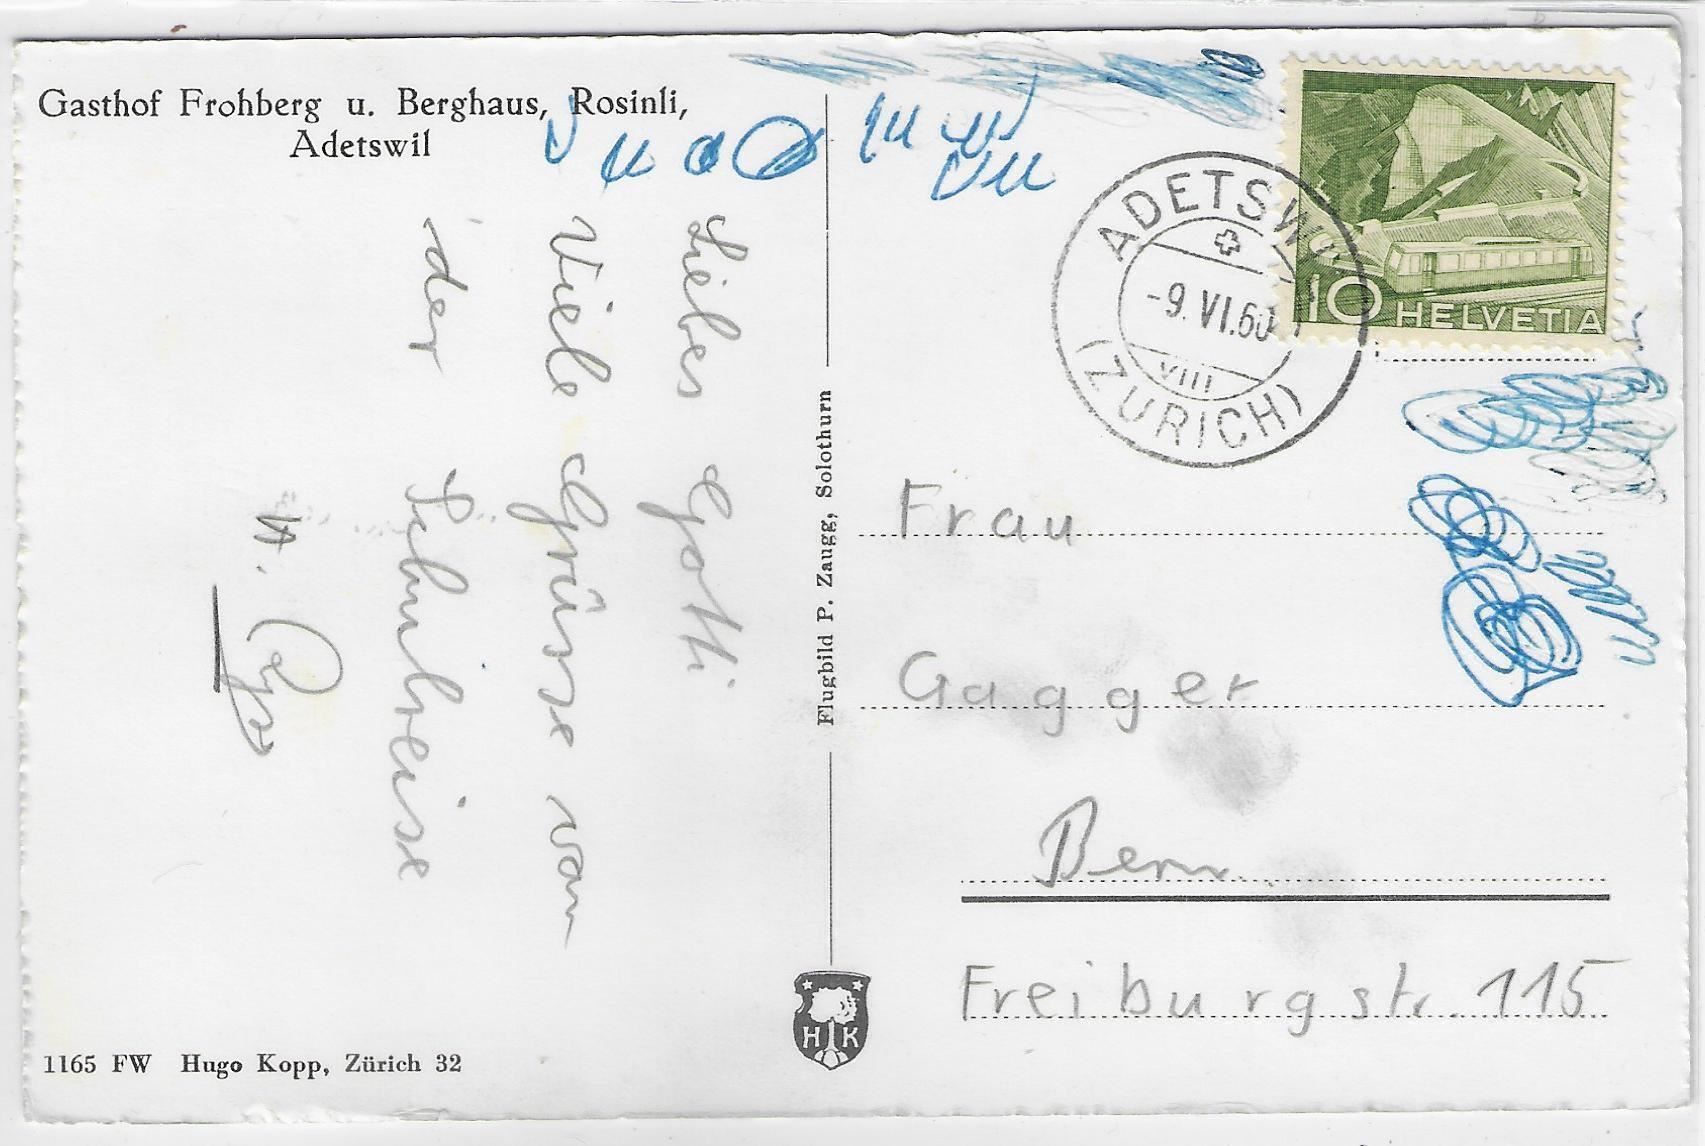 Gasthof Frohberg u. Berghaus, Rosinli,
Adetswil
Liebes Gotti
Viele Grüsse von
der Schulreise
H.
1165 FW Hugo Kopp, Zürich 32
Flugbild P. Zaugg, Solothurn
H K
ADETSWIL
-9. VI. 60
VIII
(ZÜRICH)
10 HELVETIA
Frau
Gagger
Bern
Freiburgstr. 115